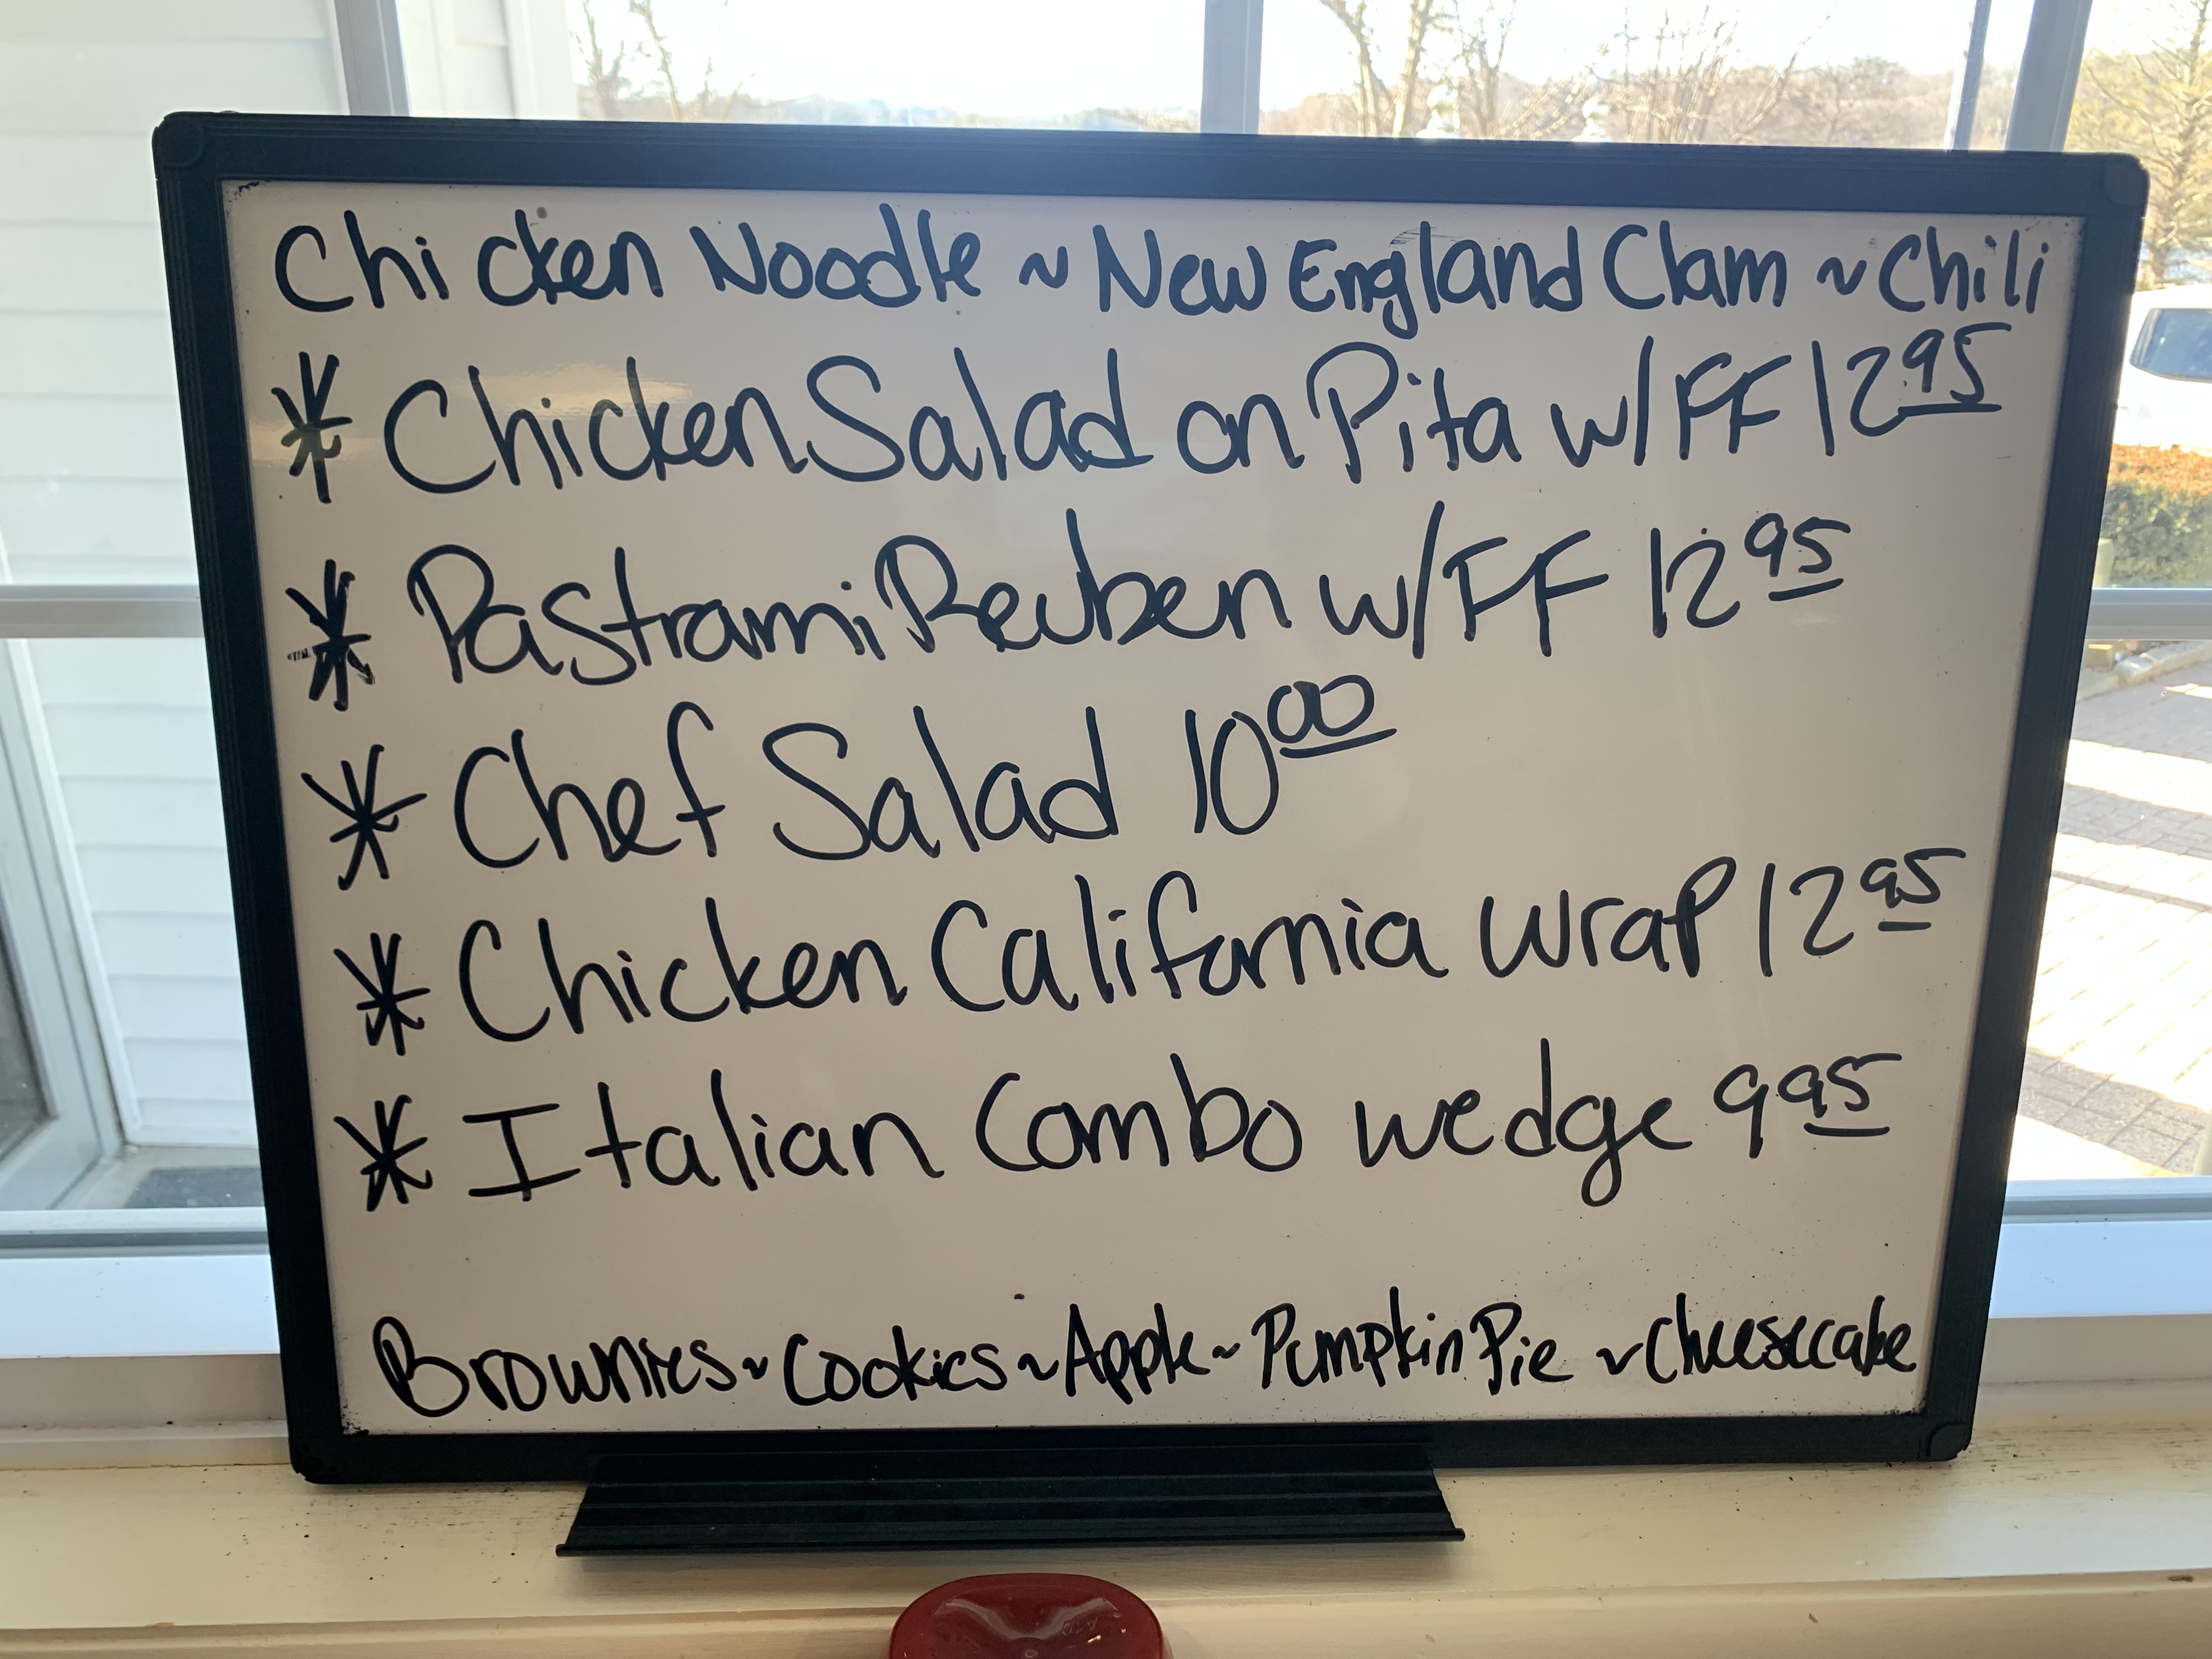 Chicken Noodle ~ New England Clam ~ Chili
* Chicken Salad on Pita w/FF 12 95
* Pastrami Reuben w/FF 12 95
* Chef Salad 10 00
* Chicken California Wrap 12 95
* Italian Combo wedge 9 95
Brownies ~ Cookies ~ Apple ~ Pumpkin Pie ~ Cheesecake